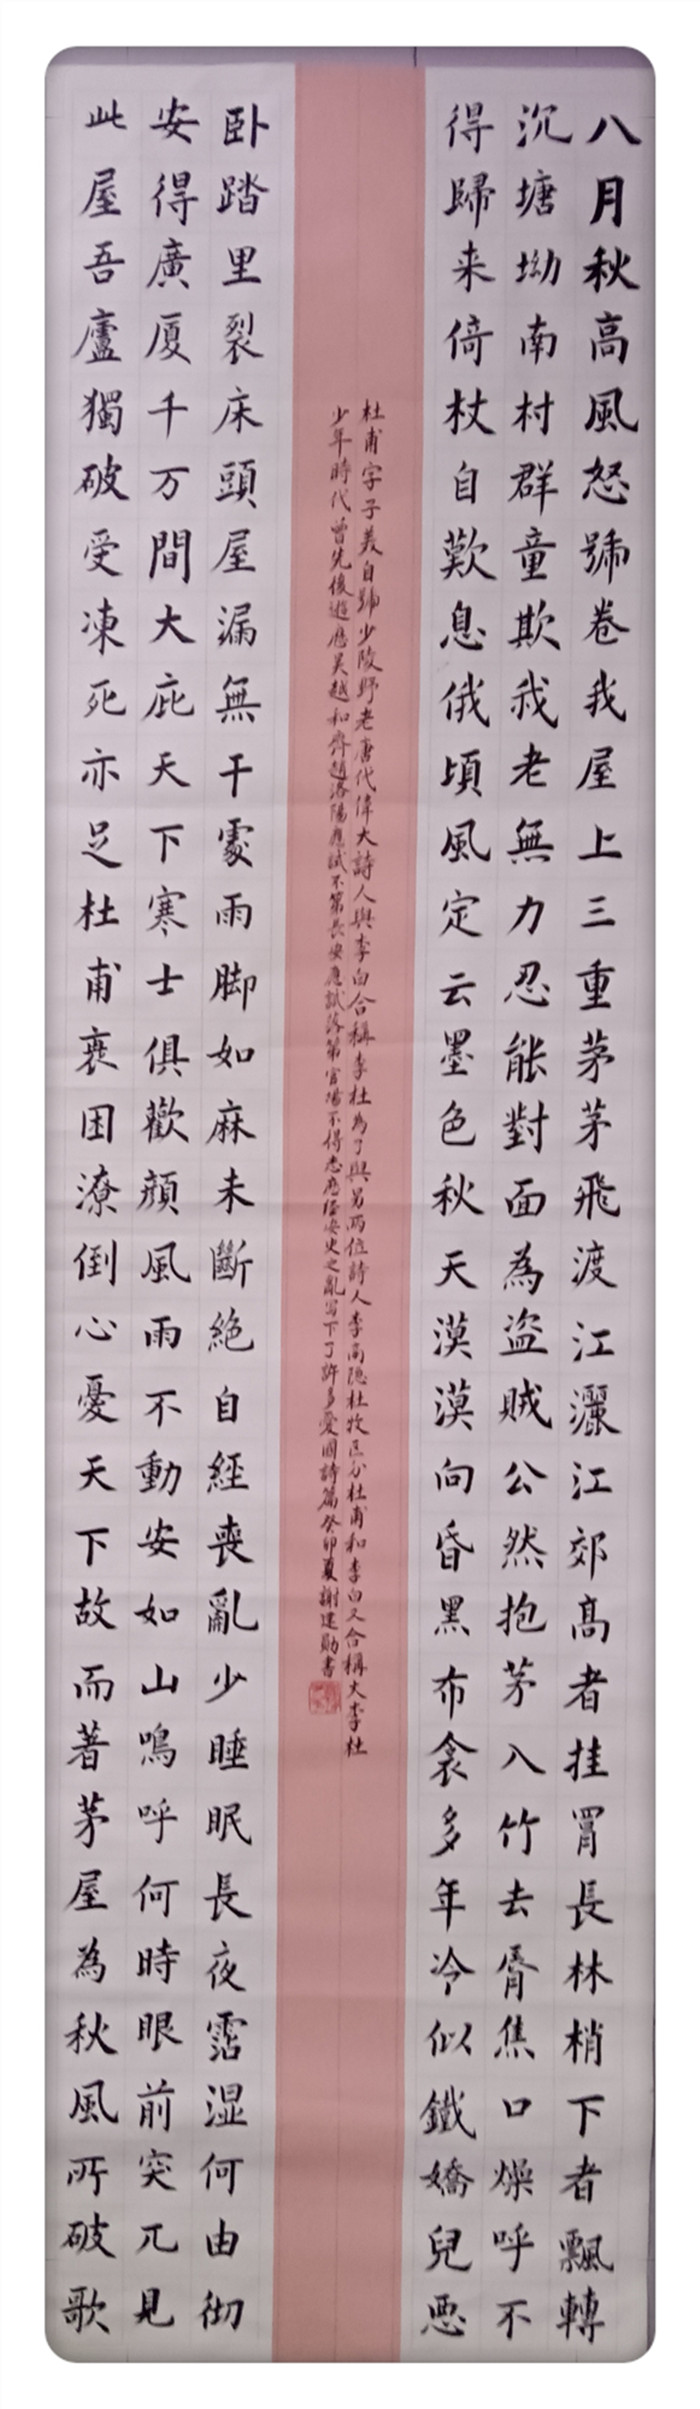 八月秋高風怒號卷我屋上三重茅茅飛渡江灑江郊高者挂罥長林梢下者飄轉
沉塘坳南村群童欺我老無力忍能對面為盗賊公然抱茅入竹去脣焦口燥呼不
得歸来倚杖自歎息俄頃風定云墨色秋天漠漠向昏黑布衾多年冷似鐵嬌兒恶
杜甫字子美自號少陵野老唐代偉大詩人與李白合稱李杜為了與另兩位詩人李商隐杜牧区分杜甫和李白又合稱大李杜
少年時代曾先後遊歷吴越和齊趙洛陽應試不第長安應試落第官場不得志歷經安史之亂写下了許多愛国詩篇癸卯夏謝建勛書
卧踏里裂床頭屋漏無干處雨脚如麻未斷絶自經喪亂少睡眠長夜霑湿何由彻
安得廣厦千万間大庇天下寒士俱歡顔風雨不動安如山鳴呼何時眼前突兀見
此屋吾廬獨破受凍死亦足杜甫衰困潦倒心憂天下故而著茅屋為秋風所破歌